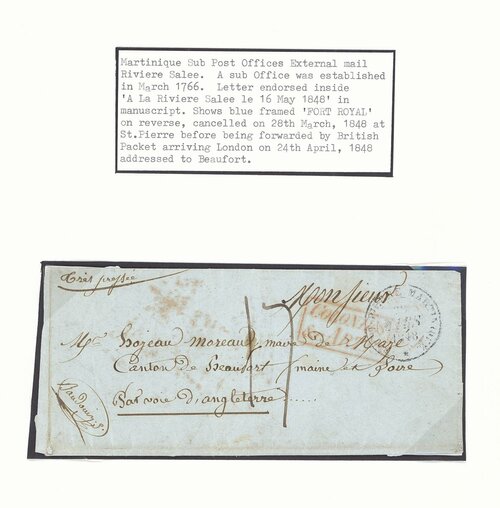 Martinique Sub Post Offices External mail
Riviere Salee. A sub Office was established
in March 1766. Letter endorsed inside
'A La Riviere Salee le 16 May 1848' in
manuscript. Shows blue framed 'FORT ROYAL'
on reverse, cancelled on 28th March, 1848 at
St.Pierre before being forwarded by British
Packet arriving London on 24th April, 1848
addressed to Beaufort.
très pressée
Monsieur
17
moreau, maire de
Canton de Beaufort (maine et Loire
Par voie d'angleterre